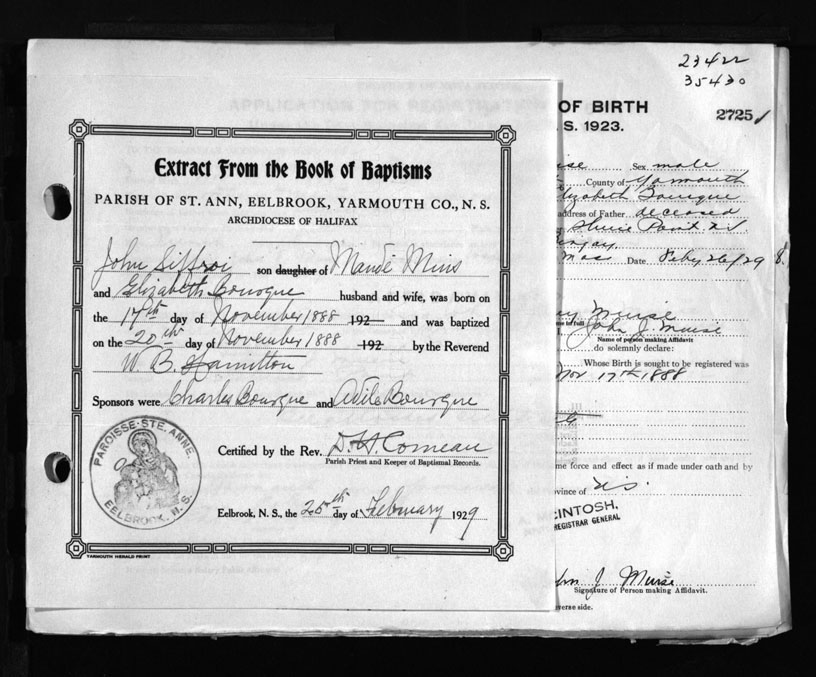 Extract From the Book of Baptisms
PARISH OF ST. ANN, EELBROOK, YARMOUTH CO., N. S.
ARCHDIOCESE OF HALIFAX
John Siffroi son daughter of Mandé Mius
and Elizabeth Bourque husband and wife, was born on
the 17th day of November 1888 192 and was baptized
on the 20th day of November 1888 192 by the Reverend
W. B. Hamilton
Sponsors were Charles Bourque and Adile Bourque
PAROISSE·STE. ANNE.
EELBROOK. N.S.
Certified by the Rev. D. H. Comeau
Parish Priest and Keeper of Baptismal Records.
Eelbrook, N. S., the 25th day of February 1929
YARMOUTH HERALD PRINT
23422
35430
OF BIRTH
S. 1923.
2725
Sex male
County of Yarmouth
Elizabeth Bourque
address of Father deceased
Date Feby 26/29
Muise
John J. Muise
Name of person making Affidavit
do solemnly declare:
Whose Birth is sought to be registered was
Nov 17th 1888
me force and effect as if made under oath and by
vince of N.S.
CINTOSH,
REGISTRAR GENERAL
John J. Muise
Signature of Person making Affidavit.
verse side.